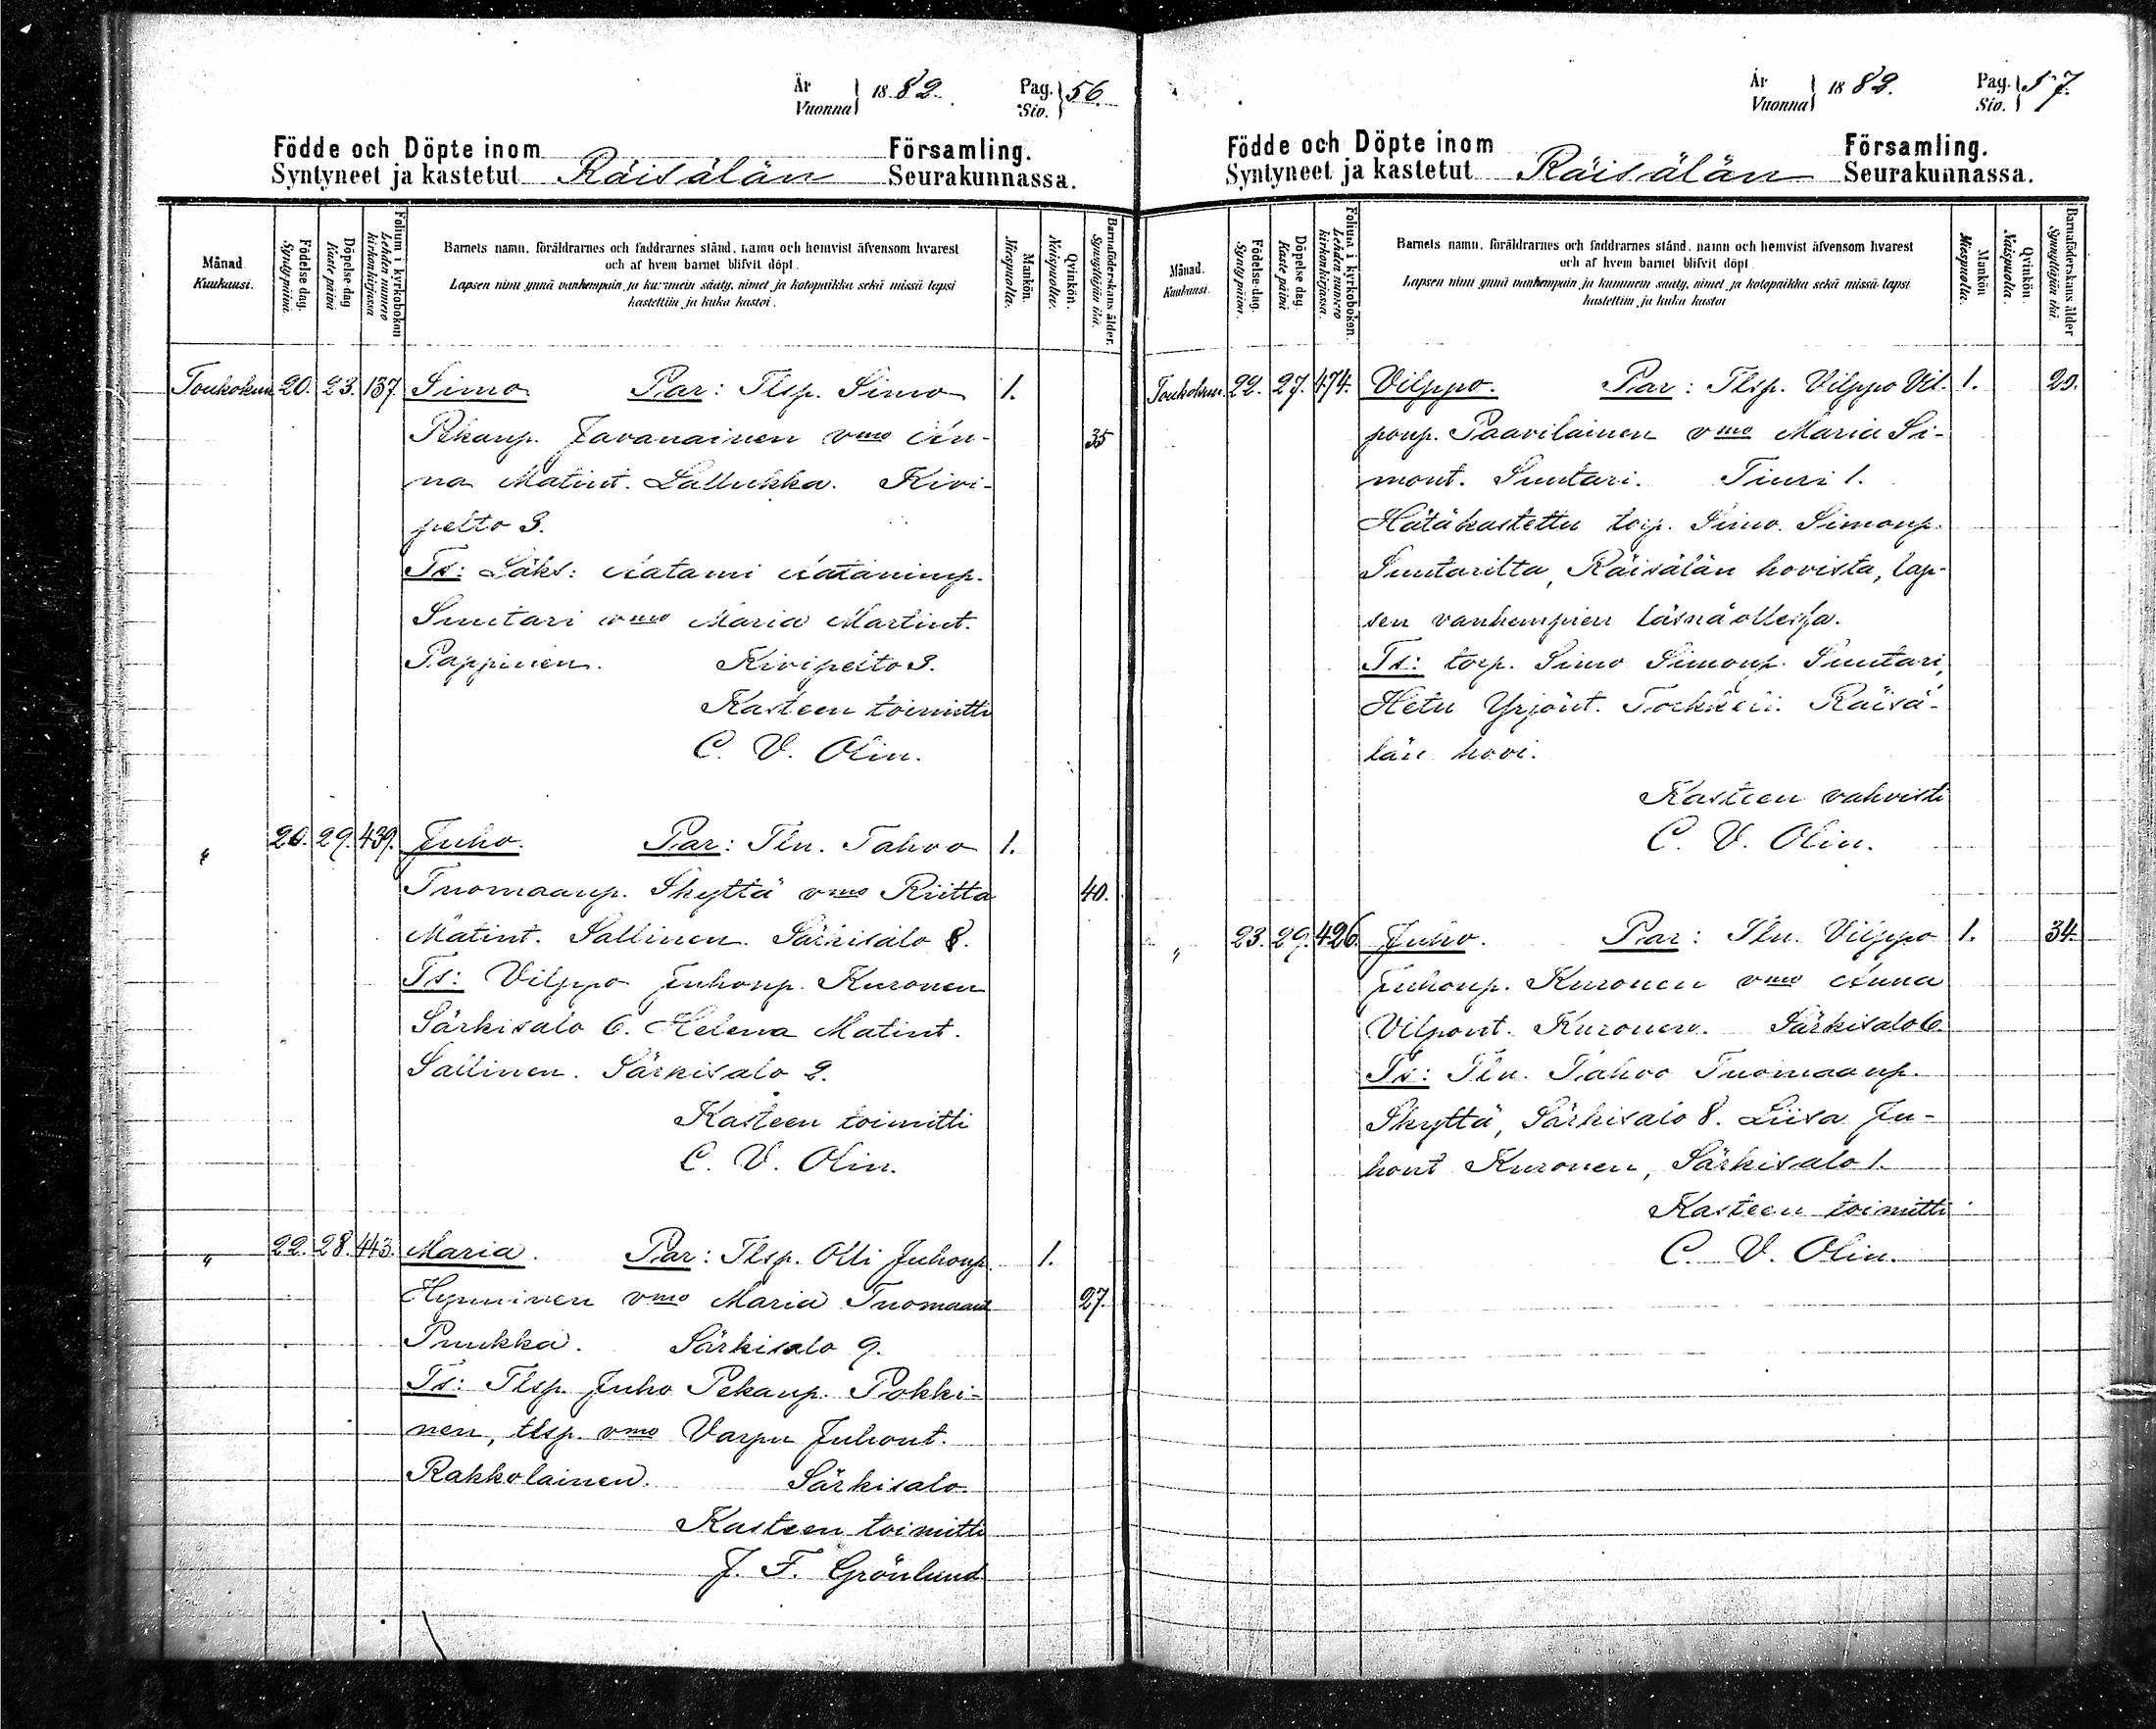 År
Vuonna } 1882. Pag. Sio. } 56.
Födde och Döpte inom Församling.
Syntyneet ja kastetut Räisälän Seurakunnassa.
Månad.
Kuukausi.
Födelse dag.
Syntypäivä.
Döpelse dag
Kaste päivä
Folium i kyrkobokon
Lehden numero kirkonkirjassa
Barnets namn, föräldrarnes och faddrarnes stånd, namn och hemvist äfvensom hvarest
och af hvem barnet blifvit döpt.
Lapsen nimi ynnä vanhempain ja kummein sääty, nimet ja kotopaikka sekä missä lapsi
kastettiin ja kuka kastoi.
Mankön.
Miespuolta.
Qvinkön.
Naispuolta.
Barnaföderskans ålder.
Synnyttäjän ikä.
Toukokuu 20. 23. 137. Simo Par: Tlsp. Simo 1.
Pekanp. Javanainen vmo An- 35
na Matint. Lallukka. Kivi-
pelto 3.
Ts: Läks: Aatami Aataminp.
Suutari vmo Maria Martint.
Pappinen. Kivipelto 3.
Kasteen toimitti
C. V. Olin.
" 20. 29. 439. Juho. Par: Tln. Tahvo 1.
Tuomaanp. Skyttä vmo Riitta 40.
Matint. Sallinen. Särkisalo 8.
Ts: Vilppo Juhonp. Kuronen
Särkisalo 6. Helena Matint.
Sallinen. Särkisalo 2.
Kasteen toimitti
C. V. Olin.
" 22. 28. 443. Maria. Par: Tlsp. Olli Juhonp. 1.
Hynninen vmo Maria Tuomaant 27.
Puukka. Särkisalo 9.
Ts: Tlsp. Juho Pekanp. Pokki-
nen, tlsp. vmo Varpu Juhont.
Rakkolainen. Särkisalo.
Kasteen toimitti
J. F. Grönlund
År
Vuonna } 1882. Pag. Sio. } 57.
Födde och Döpte inom Församling.
Syntyneet ja kastetut Räisälän Seurakunnassa.
Månad.
Kuukausi.
Födelse dag.
Syntypäivä.
Döpelse dag
Kaste päivä
Folium i kyrkobokon.
Lehden numero kirkonkirjassa.
Barnets namn, föräldrarnes och faddrarnes stånd, namn och hemvist äfvensom hvarest
och af hvem barnet blifvit döpt
Lapsen nimi ynnä vanhempain ja kummein sääty, nimet ja kotopaikka sekä missä lapsi
kastettiin ja kuka kastoi
Mankön
Miespuolta.
Qvinkön.
Naispuolta.
Barnaföderskans ålder
Synnyttäjän ikä.
Toukokuu. 22. 27. 474. Vilppo. Par: Tlsp. Vilppo Vil- 1. 20.
ponp. Paavilainen vmo Maria Si-
mont. Suutari. Tiuri 1.
Hätäkastettu torp. Simo Simonp.
Suutarilta, Räisälän hovista, lap-
sen vanhempien läsnäollessa.
Ts: torp. Simo Simonp. Suutari,
Hetu Yrjönt. Torkkeli. Räisä-
län hovi.
Kasteen vahvisti
C. V. Olin.
" 23. 29. 426. Juho. Par: Tln. Vilppo 1. 34.
Juhonp. Kuronen vmo Anna
Vilpont. Kuronen. Särkisalo 6
Ts: Tln. Tahvo Tuomaanp.
Skyttä, Särkisalo 8. Liisa Ju-
hont Kuronen, Särkisalo 1.
Kasteen toimitti
C. V. Olin.